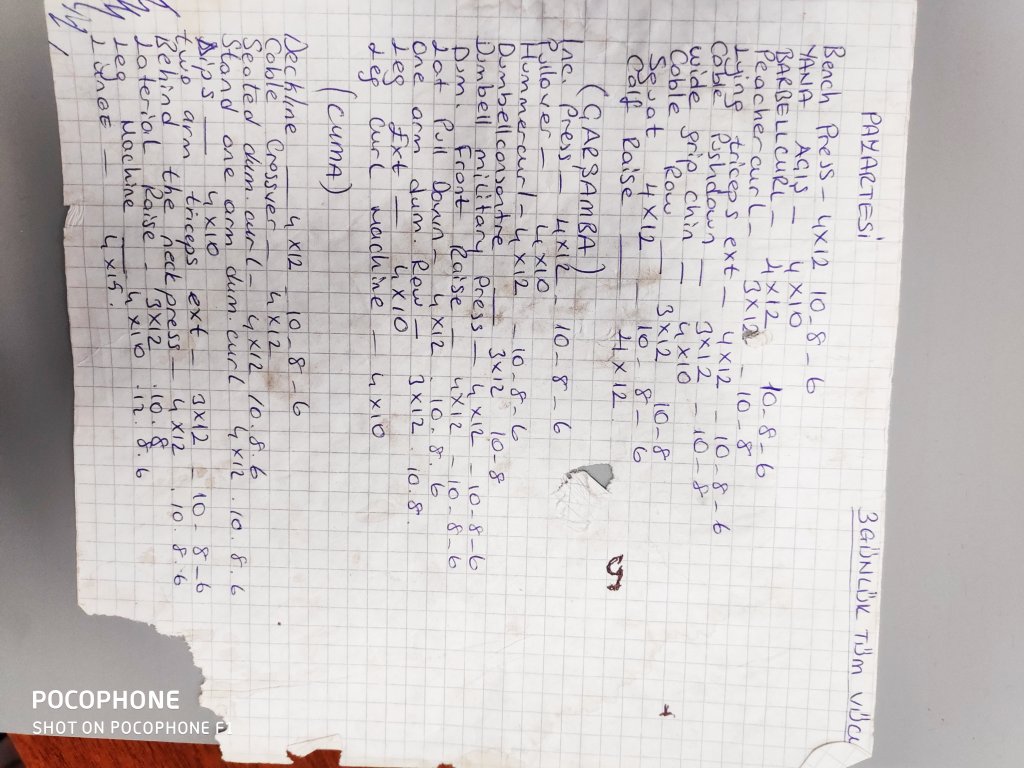 3 GÜNLÜK TÜM VÜCU
PAZARTESİ
Bench Press - 4x12 10-8-6
YANA Açış - 4x10
BARBELLCURL - 4x12 10-8-6
Peachercurl - 3x12 - 10-8
Lying triceps ext - 4x12 - 10-8-6
Cable Pushdown - 3x12 - 10-8
wide grip chin - 4x10
Cable Row - 3x12 10-8
Squat 4x12 - 10-8-6
Calf Raise - 4x12
5
(ÇARŞAMBA)
Inc. Press - 4x12 - 10-8-6
Pullover - 4x10
Hummercurl - 4x12 - 10-8-6
Dumbellconsantre - 3x12 10-8
Dumbell military Press - 4x12 - 10-8-6
Dım. Front Raise - 4x12 - 10-8-6
Lat Pull Down - 4x12 . 10.8.6
One arm dum. Row - 3x12 . 10.8.
Leg Ext - 4x10
Leg Curl machine - 4x10
(CUMA)
Deckline - 4x12 - 10-8-6
Cable Crossver - 4x12
Seated dum.curl - 4x12 10.8.6
Stand one arm dum.curl 4x12 . 10.8.6
Dips - 4x10
two arm triceps ext - 3x12 - 10-8-6
Behind the neckpress - 4x12 . 10.8.6
Laterial Raise - 3x12 . 10.8.
Leg Machine - 4x10 .12.8.6
4x15.
POCOPHONE
SHOT ON POCOPHONE F1